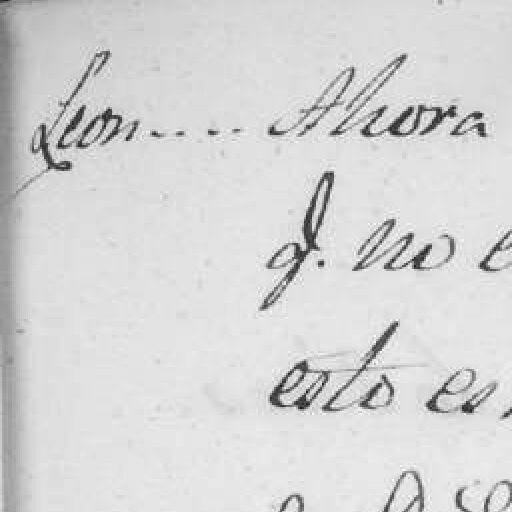 Leon.... Ahora
q. no e
esto es